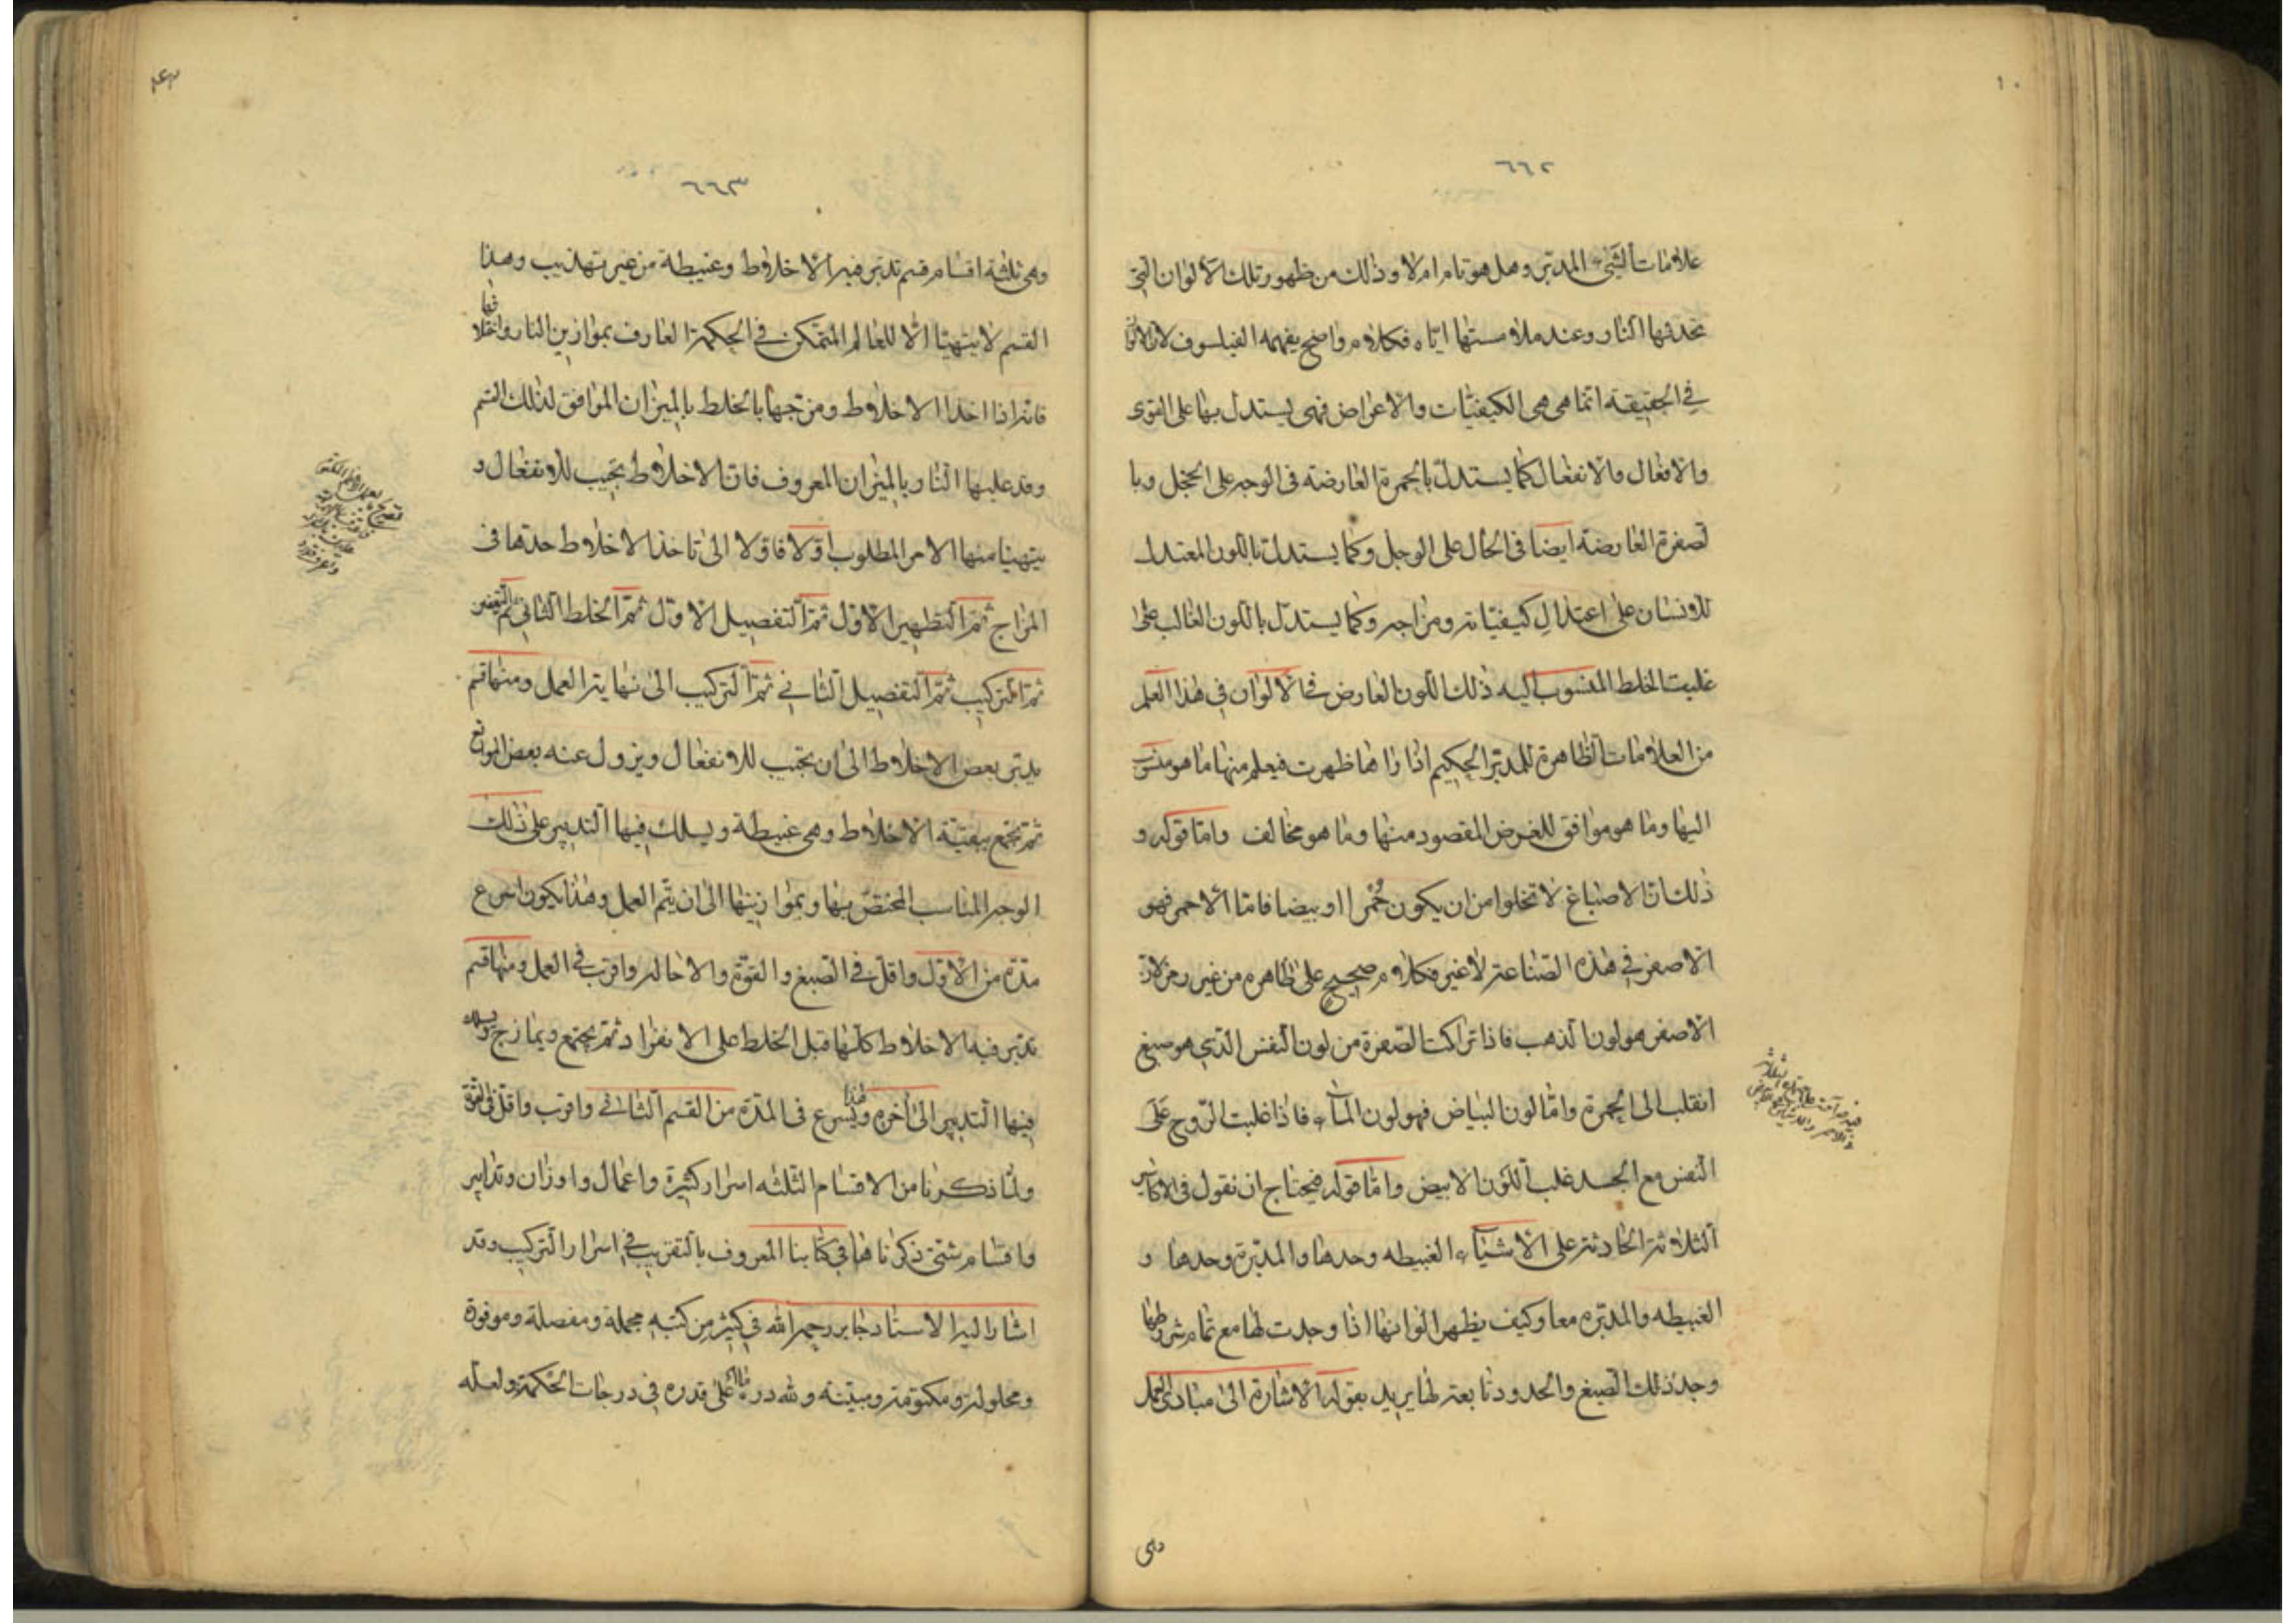 ٦٦٢
علامات الشيء المدبر وهل هو تام ام لا وذلك من ظهور تلك الالوان التي
تحدثها النار وعند ملامستها اياه فكلام واضح يفهمه الفيلسوف لان الالوان
في الحقيقة انما هي هي الكيفيات والاعراض فهي يستدل بها على القوى
والافعال والانفعال كما يستدل بالحمرة العارضة في الوجه على الخجل وبا
لصفرة العارضة ايضا في الحال على الوجل وكما يستدل باللون المعتدل
للانسان على اعتدال كيفياته ومزاجه وكما يستدل باللون الغالب على
غلبت الخلط المنسوب اليه ذلك اللون العارض فالالوان في هذا العلم
من العلامات الظاهرة للمدبر الحكيم اذا راها ظهرت فيعلم منها ما هو منسوب
اليها وما هو موافق للغرض المقصود منها وما هو مخالف واما قوله و
ذلك ان الاصباغ لا تخلوا من ان يكون حُمرا او بيضا فاما الاحمر فهو
الاصفر في هذه الصناعة لا غير فكلام صحيح على ظاهره من غير رمز لان
الاصفر هو لون الذهب فاذا تراكت الصفرة من لون النفس الذي هو صبغ
انقلب الى الحمرة واما لون البياض فهو لون الماء فاذا غلبت الروح عَلَى
النفس مع الجسد غلب اللون الابيض واما قوله فيحتاج ان نقول في الاكاسير
الثلاثة الحادثة على الاشياء الغبيطه وحدها والمدبرة وحدها و
الغبيطه والمدبره معا وكيف يظهر الوانها اذا وجدت لها مع تمام شروطها
وجد ذلك الصبغ والحدود تابعة لها يريد بقوله الاشارة الى مبادى العمل
وهي
٦٦٣
وهي ثلثة اقسام قسم تدبر فيه الاخلاط وغبيطة من غير تهذيب وهذا
القسم لا يتهيّا الّا للعالم المتمكن في الحكمة العارف بموازين النار وافعالها
فانه اذا اخذ الاخلاط ومزجها بالخلط بالميزان الموافق لذلك القسم
وقد عليها النار بالميزان المعروف فان الاخلاط تجيب للانفعال و
يتهيا منها الامر المطلوب اوّلا فاوّلا الى ان تاخذ الاخلاط حدها في
المزاج ثم التطهير الاول ثم التفصيل الاول ثم الخلط الثاني ثم التعفين
ثم التركيب ثم التفصيل الثاني ثم التركيب الى نهاية العمل ومنها قسم
يدبر بعض الاخلاط الى ان يجيب للانفعال ويزول عنه بعض الموانع
ثم تجمع ببقية الاخلاط وهي غبيطة ويسلك فيها التدبير على ذلك
الوجه المناسب المختص بها وبموازينها الى ان يتم العمل وهذا يكون اسرع
مدة من الاول واقل في الصبغ والقوة والاحاله واقرب في العمل ومنها قسم
تدبر فيه الاخلاط كلها قبل الخلط على الانفراد ثم تجتمع ويمازج ويسلك
فيها التدبير الى اخره وهذا يسرع في المدة من القسم الثاني واقرب واقل في القوة
ولما ذكرنا من الاقسام الثلثه اسرار كثيرة واعمال واوزان وتدابير
واقسام شتى ذكرناها في كتابنا المعروف بالتقريب في اسرار التركيب وقد
اشار اليه الاستاد جابر رحمه الله في كثير من كتبه مجملة ومفصلة وموفورة
ومحلوله ومكتومة ومبيّنة ولله دره ما اعلى قدره في درجات الحكمة ولعله